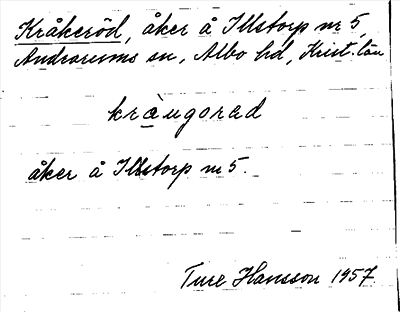 Kråkeröd, åker å Illstorp nr 5,
Andrarums sn, Albo hd, Krist. län
kràugorad
åker å Illstorp nr 5.
Ture Hansson 1957.